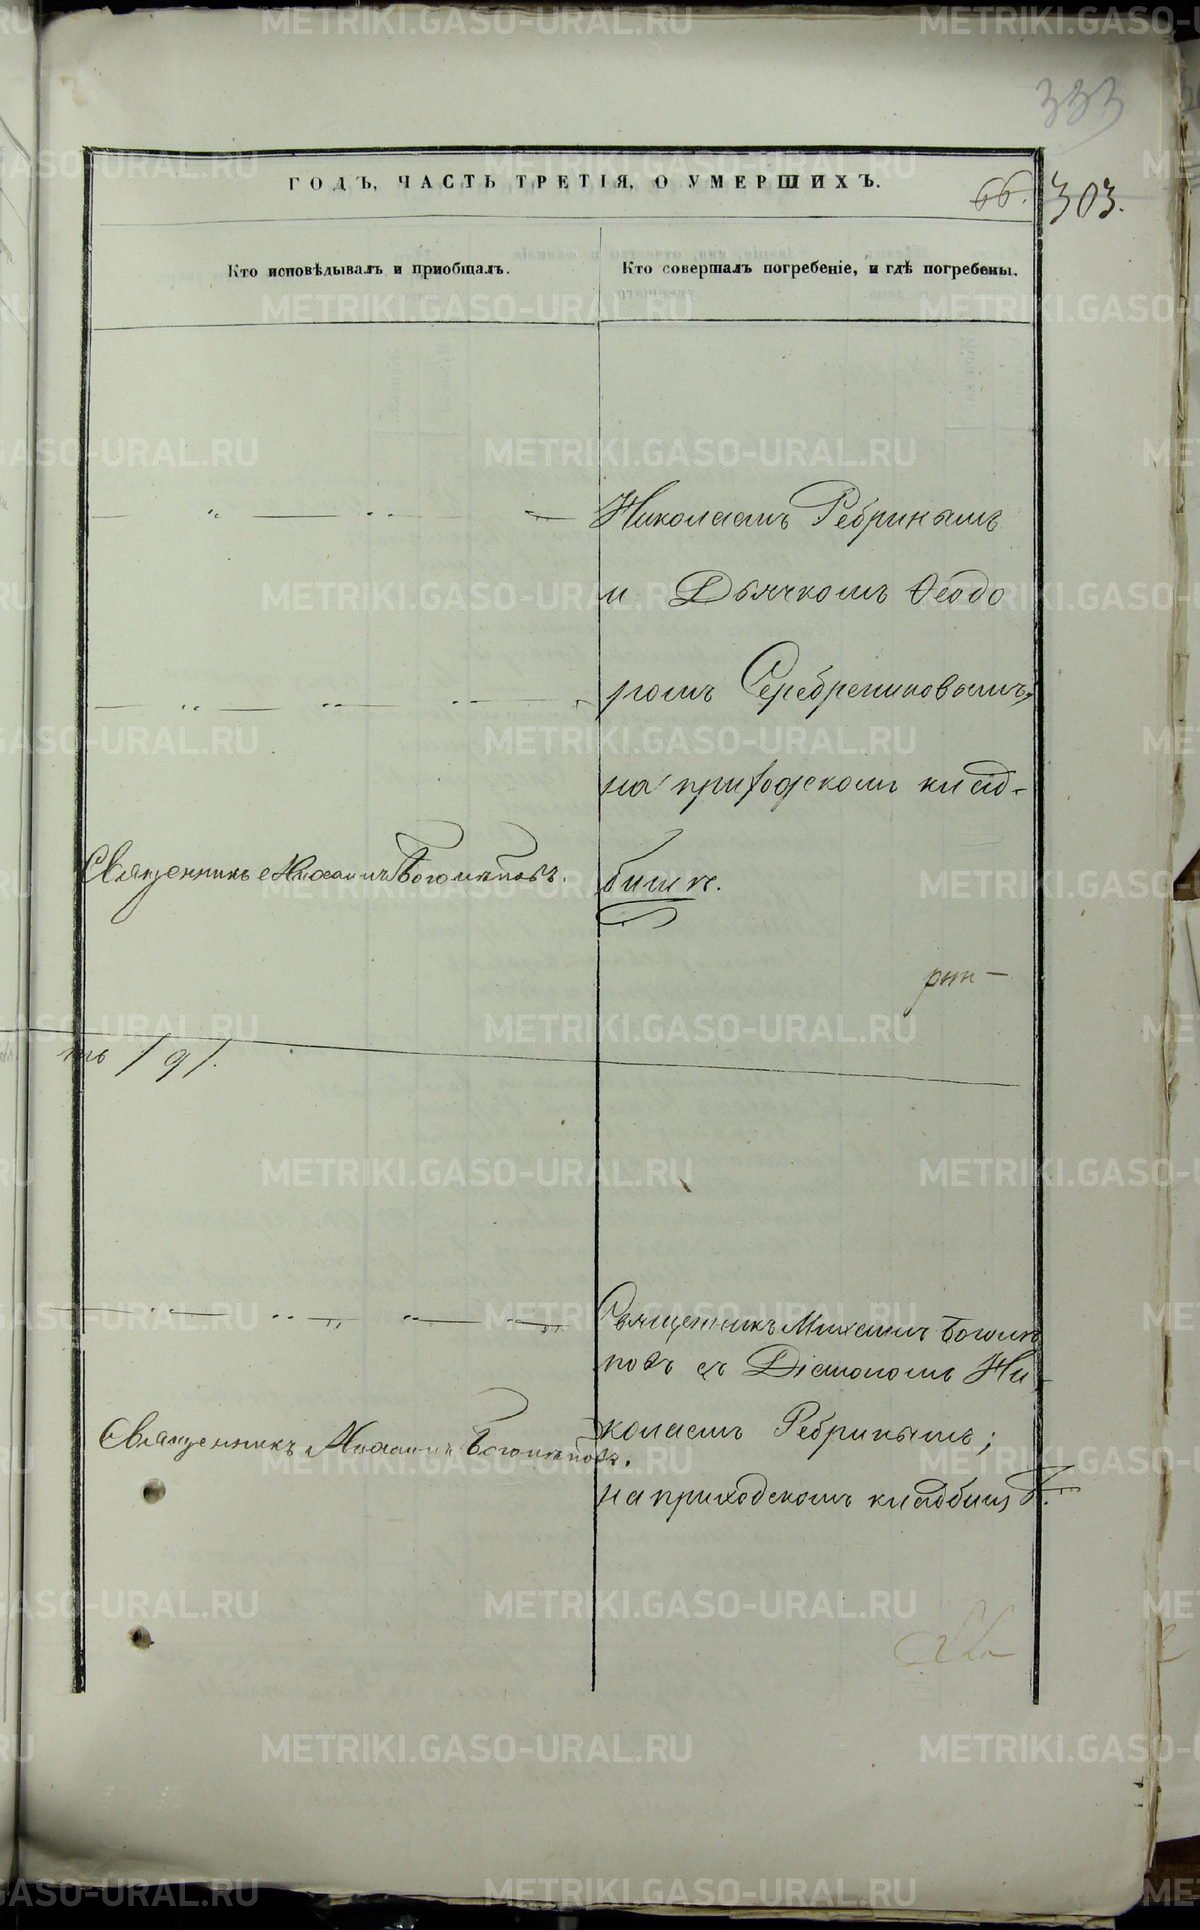 333
ГОДЪ, ЧАСТЬ ТРЕТІЯ, О УМЕРШИХЪ.
66.
303.
Кто исповѣдывалъ и приобщалъ.
Кто совершалъ погребеніе, и гдѣ погребены.
Николаемъ Ребринымъ
и Дьячкомъ Ѳеодо
ромъ Серебрениковымъ,
на приходскомъ клад-
бищѣ.
Священникъ Михаилъ Боголѣповъ.
рпп —
/ 91.
Священникъ Михаилъ Боголѣ
повъ съ Діакономъ Ни-
колаемъ Ребринымъ;
на приходскомъ кладбищѣ.
Священникъ Михаилъ Боголѣповъ.
METRIKI.GASO-URAL.RU